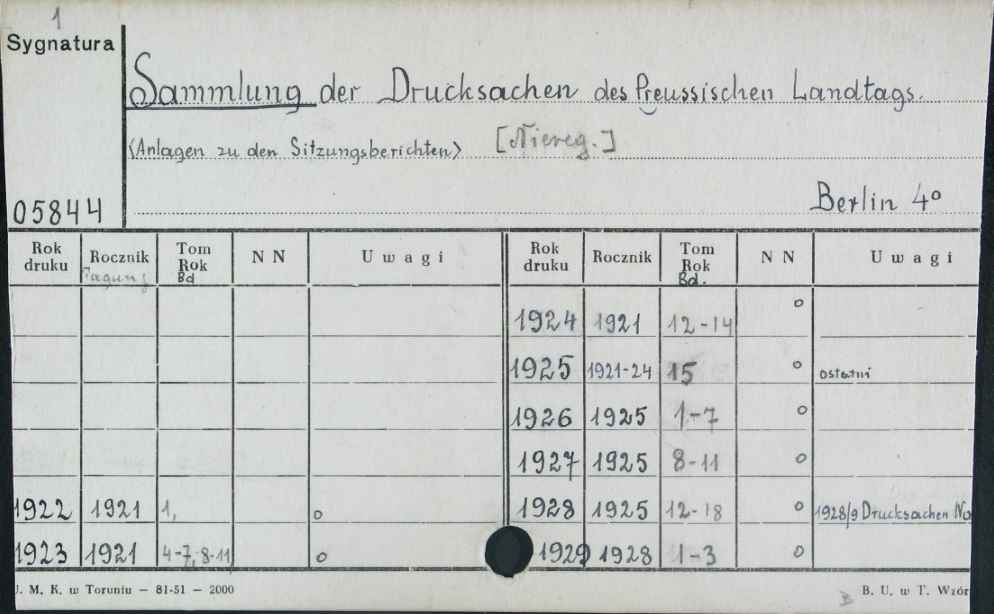 1
Sygnatura
Sammlung der Drucksachen des Preussischen Landtags.
<Anlagen zu den Sitzungsberichten> [Niereg.]
05844 Berlin 4º
Rok druku Rocznik Tagung Tom Rok Bd N N Uwagi Rok druku Rocznik Tom Rok Bd. N N Uwagi
1924 1921 12-14 o
1925 1921-24 15 o ostatni
1926 1925 1-7 o
1927 1925 8-11 o
1922 1921 1, o 1928 1925 12-18 o 1928/9 Drucksachen No
1923 1921 4-7, 8-11 o 1929 1928 1-3 o
J. M. K. w Toruniu — 81-51 — 2000 B. U. w T. Wzór